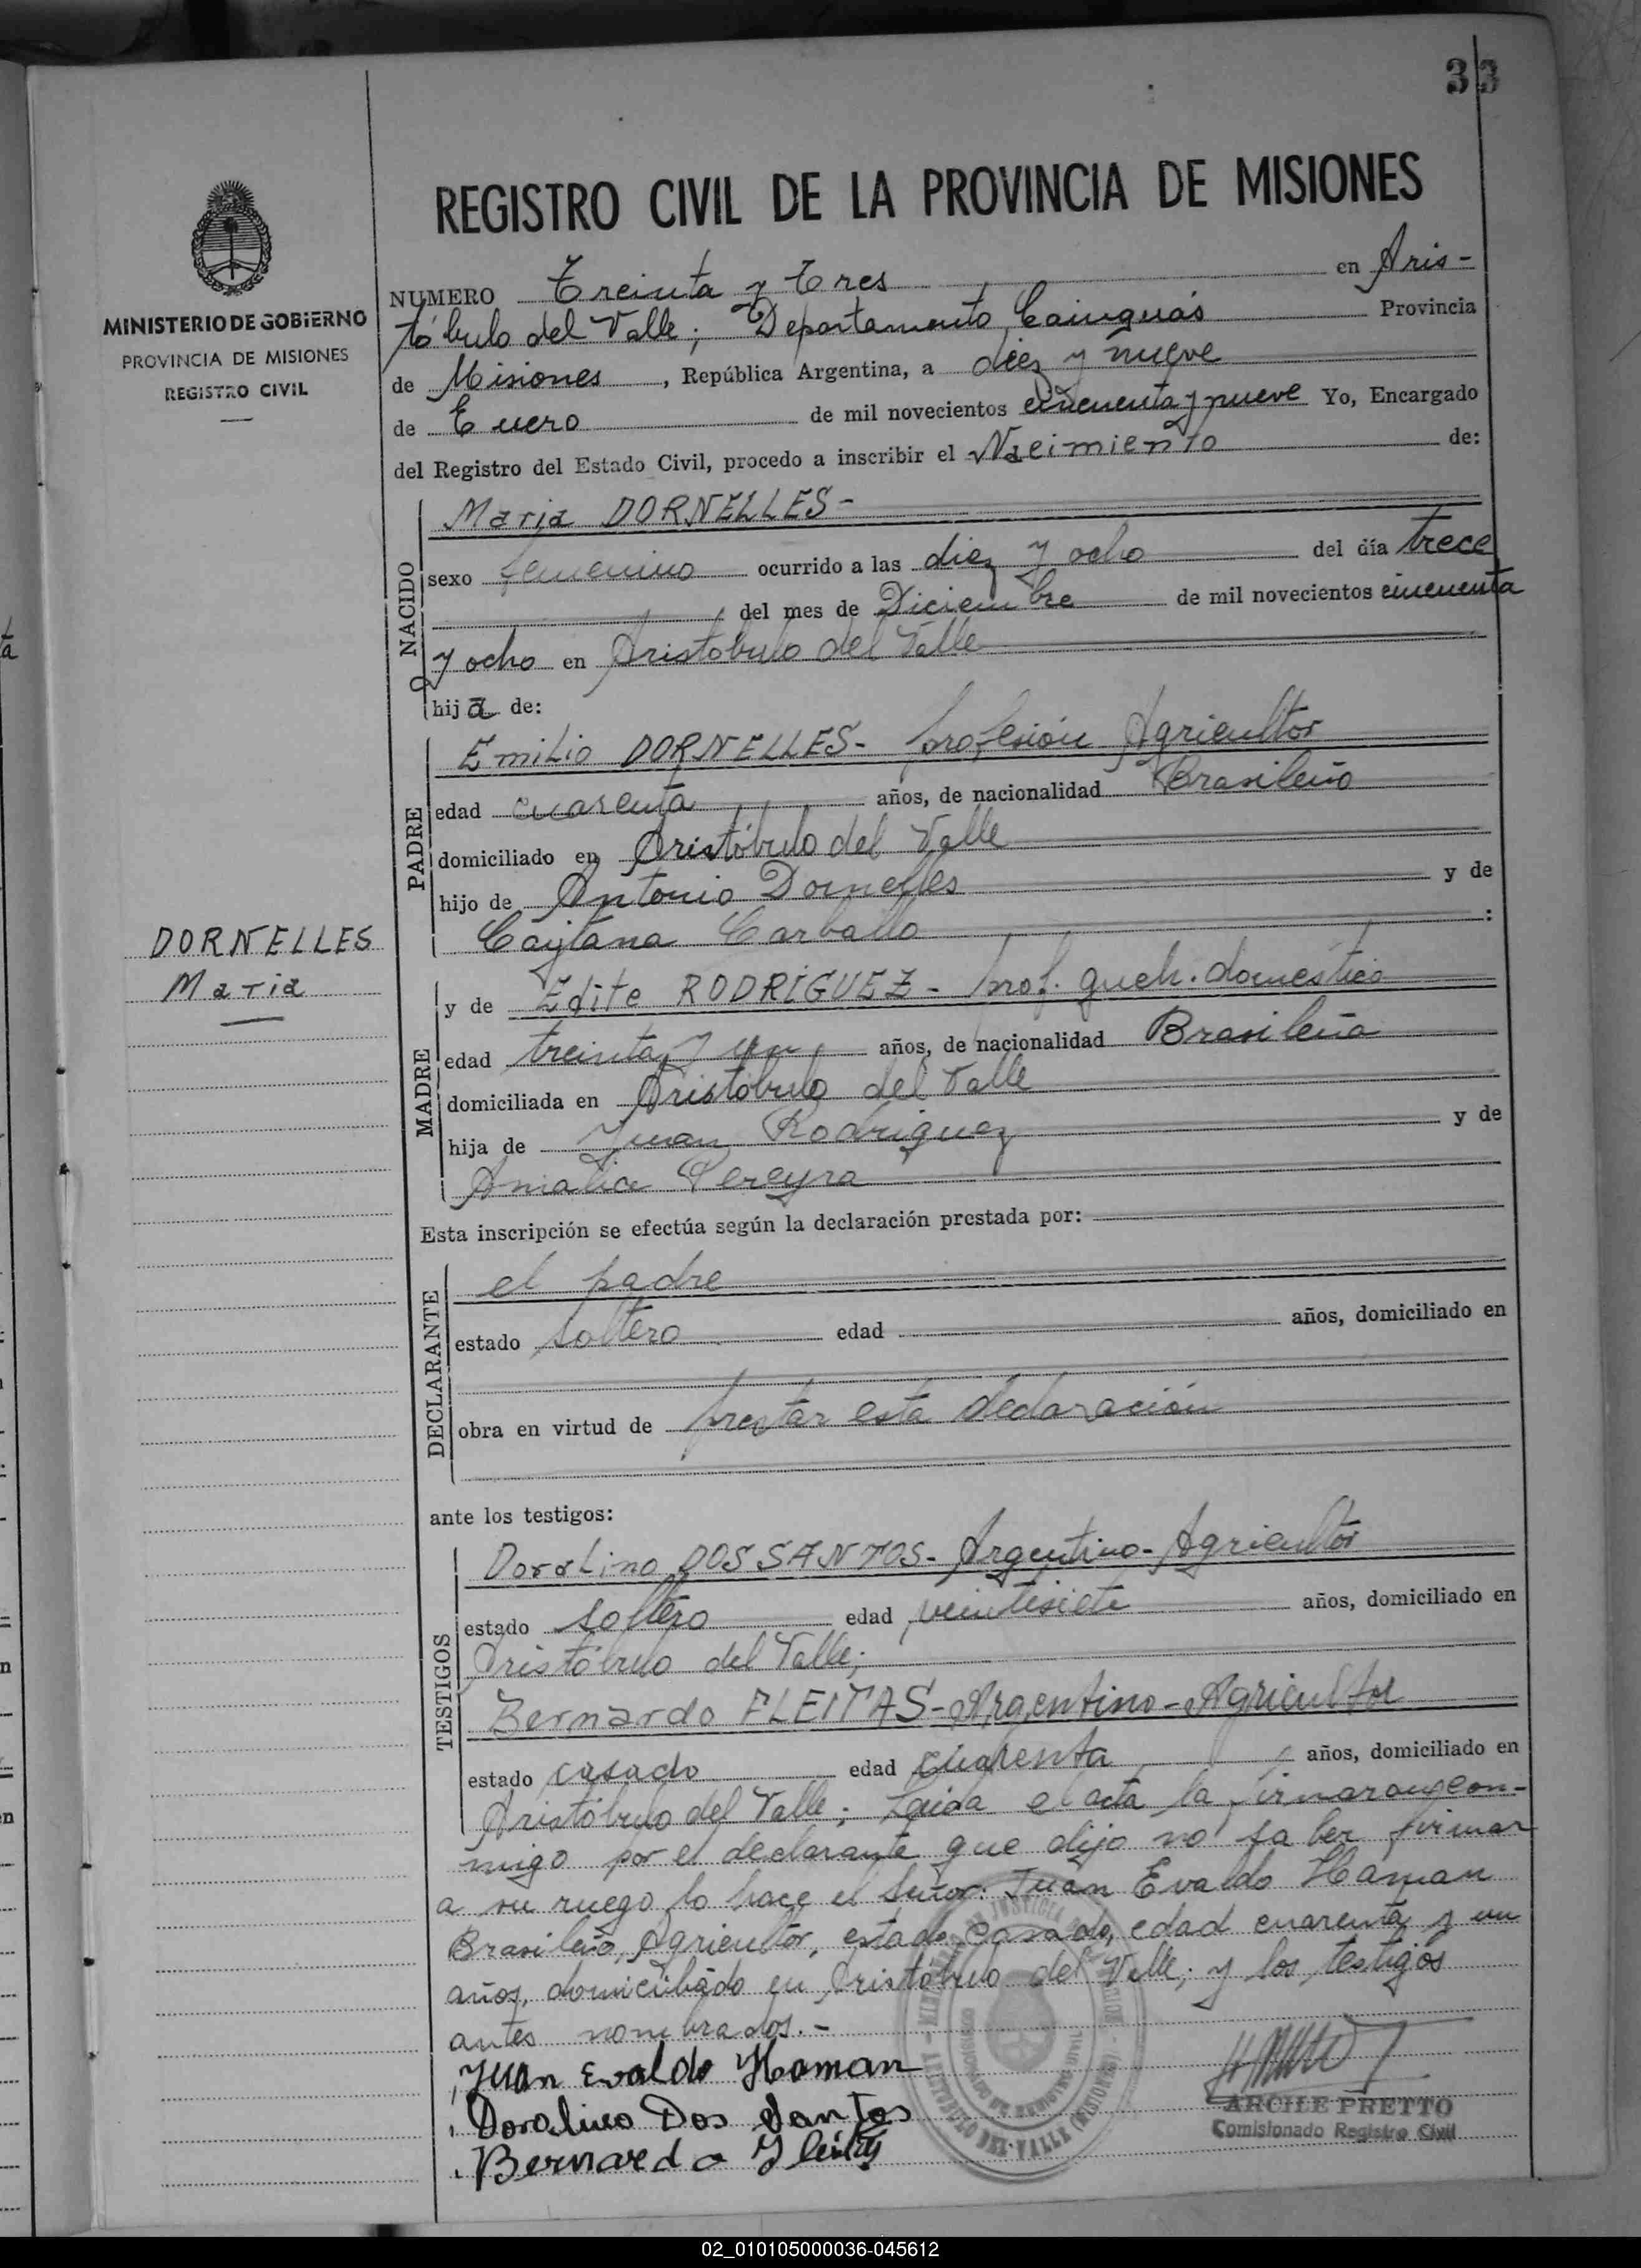 33
MINISTERIO DE GOBIERNO
PROVINCIA DE MISIONES
REGISTRO CIVIL
REGISTRO CIVIL DE LA PROVINCIA DE MISIONES
NUMERO Treinta y tres en Aris-
tóbulo del Valle; Departamento Cainguás Provincia
de Misiones, República Argentina, a diez y nueve
de Enero de mil novecientos cincuenta y nueve Yo, Encargado
del Registro del Estado Civil, procedo a inscribir el Nacimiento de:
NACIDO
Maria DORNELLES-
sexo femenino ocurrido a las diez y ocho del día trece
del mes de Diciembre de mil novecientos cincuenta
y ocho en Aristóbulo del Valle
hija de:
PADRE
Emilio DORNELLES- profesión Agricultor
edad cuarenta años, de nacionalidad Brasileño
domiciliado en Aristóbulo del Valle
hijo de Antonio Dornelles y de
Caytana Carballo :
DORNELLES
Maria
MADRE
y de Edite RODRIGUEZ- prof. queh. domestico
edad treinta y un años, de nacionalidad Brasileña
domiciliada en Aristóbulo del Valle
hija de Juan Rodriguez y de
Amalia Pereyra
Esta inscripción se efectúa según la declaración prestada por:
DECLARANTE
el padre
estado soltero edad años, domiciliado en
obra en virtud de prestar esta declaración
ante los testigos:
TESTIGOS
Doralino DOS SANTOS- Argentino- Agricultor
estado soltero edad veintisiete años, domiciliado en
Aristóbulo del Valle;
Bernardo FLEITAS- Argentino- Agricultor
estado casado edad cuarenta años, domiciliado en
Aristóbulo del Valle; Leida el acta la firmaron con-
migo por el declarante que dijo no saber firmar
a su ruego lo hace el Señor: Juan Evaldo Haman
Brasileño, Agricultor, estado casado, edad cuarenta y un
años, domiciliado en Aristóbulo del Valle; y los testigos
antes nombrados.-
Juan Evaldo Haman
Doralino Dos Santos
Bernardo Fleitas
ARCILE PRETTO
Comisionado Registro Civil
02_010105000036-045612